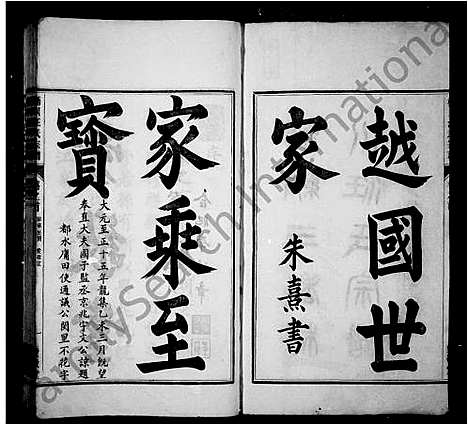 越國世
家
朱熹書
家乘至
寳
大元至正十五年龍集乙未三月既望
奉直大夫國子監丞京兆宇文公諒題
都水庸田使通議公閱里不花字
FamilySearch International